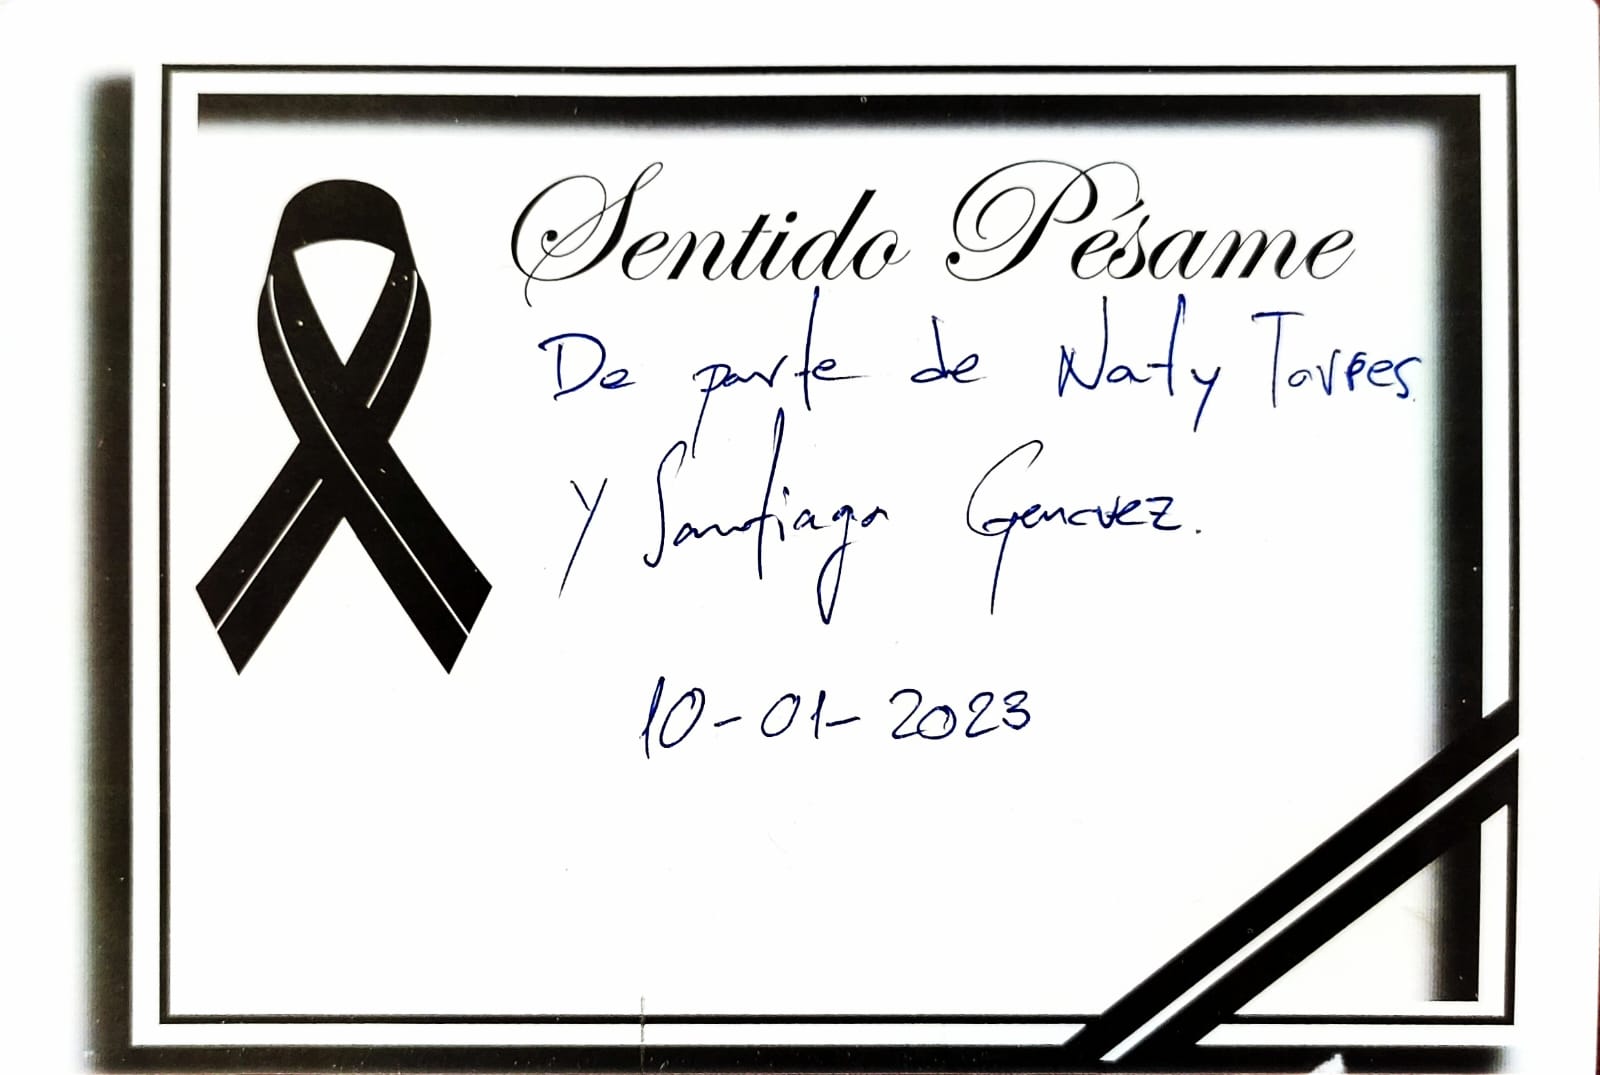 Sentido Pésame
De parte de Naty Torres
y Santiago
10-01-2023